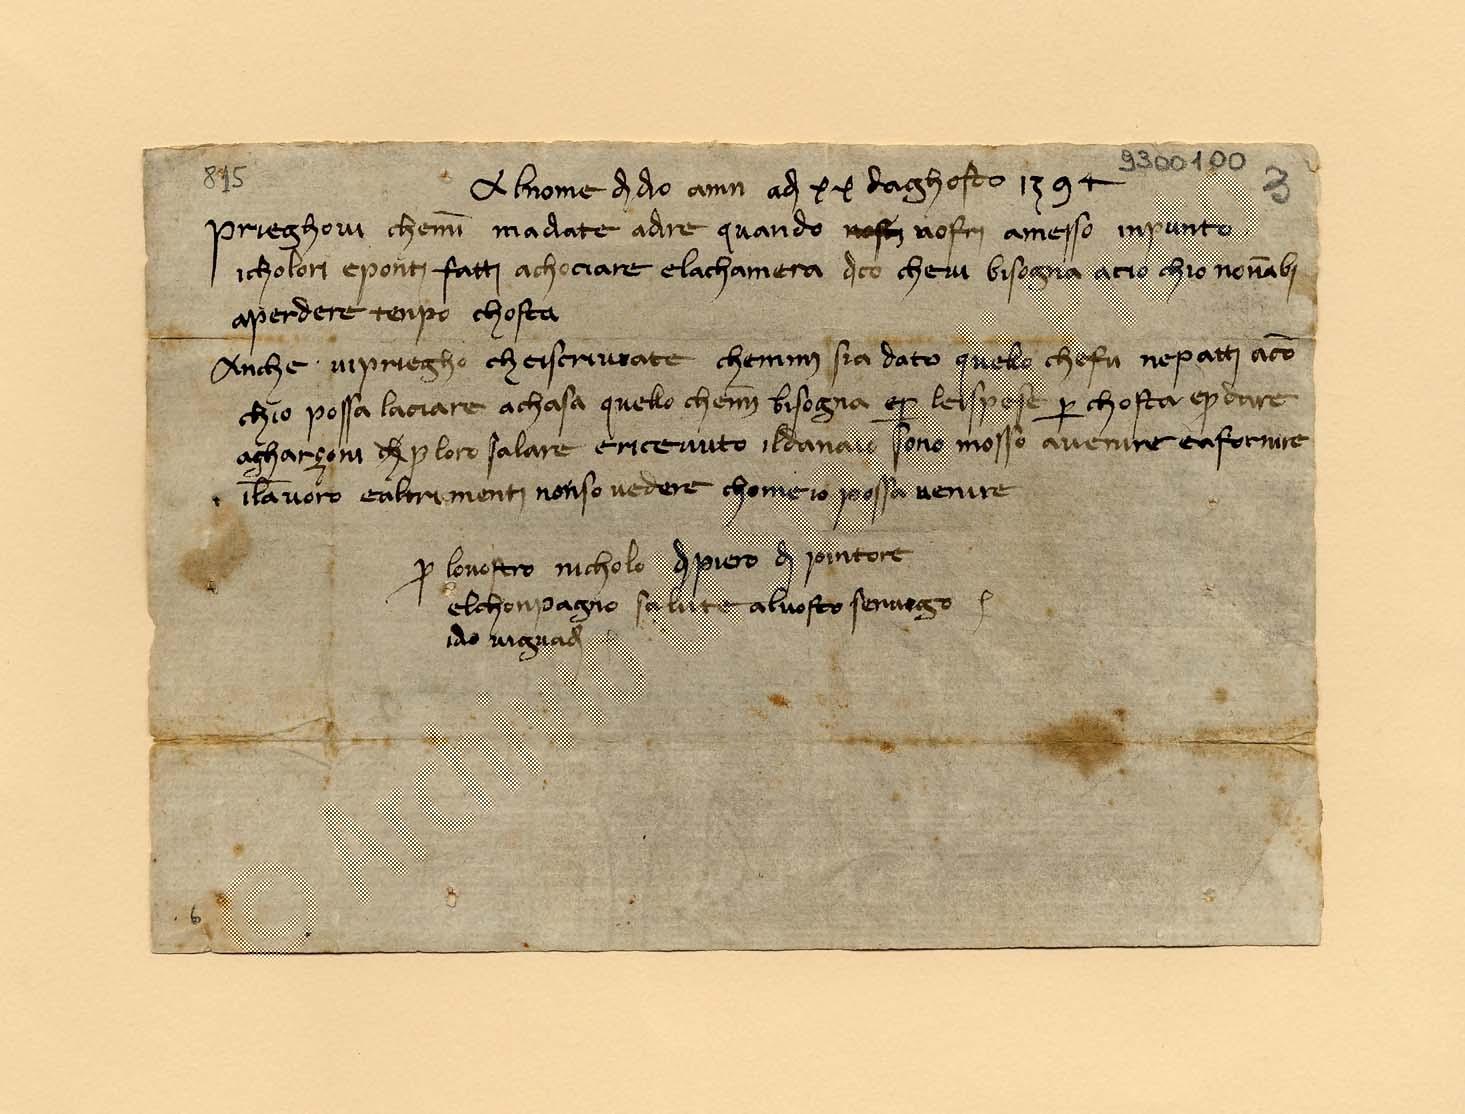 815
9300100
3
Al nome di dio amn adi xx daghosto 1394
Prieghovi chemi madate adire quando nofri amesso inpunto
icholori eponti fatti achociare elachamera dco chevi bisogna acio chio nonabi
aperdere tenpo chosta
Anche vipriegho cheiscriviate chemmi sia dato quello chefu nepatti acio
chio possa laciare achasa quello chemi bisogna per lespese p chosta epdare
agharzoni p loro salare ericevuto ildanaio sono mosso avenire eafornire
ilavoro ealtrimenti nonso vedere chomeio possa venire
p lovostro nicholo di piero di pintore
elchonpagno salute alvosto servigo
idio viguadi
6
© Archivio